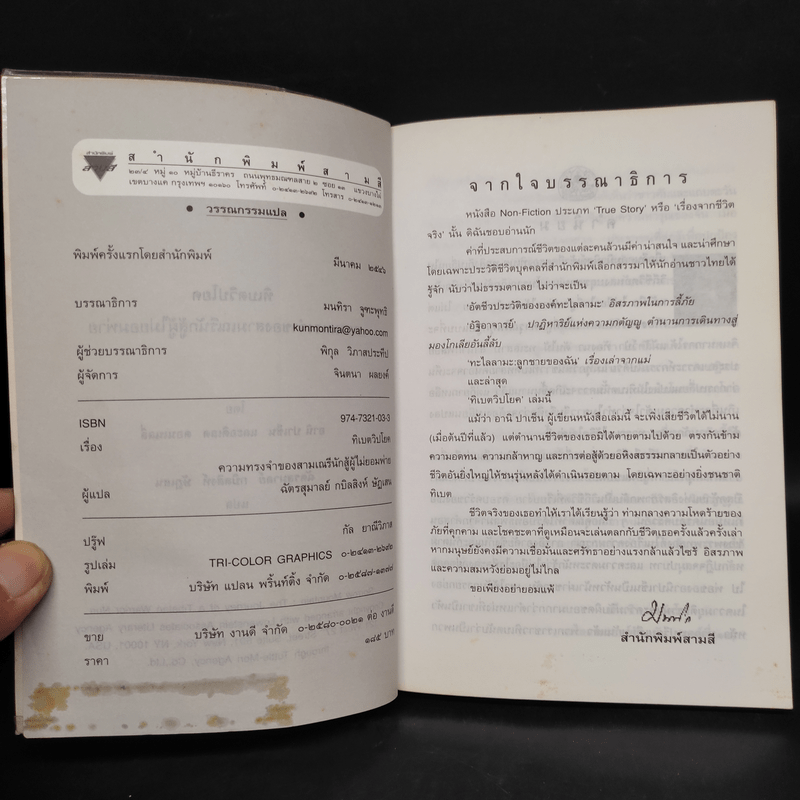 สำนักพิมพ์
สามสี
สำนักพิมพ์สามสี
๒๓/๔ หมู่ ๑๐ หมู่บ้านธีราคร ถนนพุทธมณฑลสาย ๒ ซอย ๑๓ แขวงบางไผ่
เขตบางแค กรุงเทพฯ ๑๐๑๖๐ โทรศัพท์ ๐-๒๔๑๓-๒๖๙๒ โทรสาร ๐-๒๔๑๓-
วรรณกรรมแปล
พิมพ์ครั้งแรกโดยสำนักพิมพ์ มีนาคม ๒๕๔๖
บรรณาธิการ มนทิรา จูฑะพุทธิ
kunmontira@yahoo.com
ผู้ช่วยบรรณาธิการ พิกุล วิภาสประทีป
ผู้จัดการ จินตนา ผลยงค์
ISBN 974-7321-03-3
เรื่อง ทิเบตวิปโยค
ความทรงจำของสามเณรีนักสู้ผู้ไม่ยอมพ่าย
ผู้แปล ฉัตรสุมาลย์ กบิลสิงห์ ษัฏเสน
ปรู๊ฟ กัล ยาณีวิภาส
รูปเล่ม TRI-COLOR GRAPHICS ๐-๒๔๑๓-๒๖๙๒
พิมพ์ บริษัท แปลน พริ้นท์ติ้ง จำกัด ๐-๒๕๘๗-๑๓๗๗
ขาย บริษัท งานดี จำกัด ๐-๒๕๘๐-๐๐๒๑ ต่อ งานดี
ราคา ๑๘๕ บาท
จากใจบรรณาธิการ
หนังสือ Non-Fiction ประเภท 'True Story' หรือ 'เรื่องจากชีวิต
จริง' นั้น ดิฉันชอบอ่านนัก
ค่าที่ประสบการณ์ชีวิตของแต่ละคนล้วนมีค่าน่าสนใจ และน่าศึกษา
โดยเฉพาะประวัติชีวิตบุคคลที่สำนักพิมพ์เลือกสรรมาให้นักอ่านชาวไทยได้
รู้จัก นับว่าไม่ธรรมดาเลย ไม่ว่าจะเป็น
'อัตชีวประวัติขององค์ทะไลลามะ' อิสรภาพในการลี้ภัย
'อัฐิอาจารย์' ปาฏิหาริย์แห่งความกตัญญู ตำนานการเดินทางสู่
มองโกเลียอันลี้ลับ
'ทะไลลามะ:ลูกชายของฉัน' เรื่องเล่าจากแม่
และล่าสุด
'ทิเบตวิปโยค' เล่มนี้
แม้ว่า อานี ปาเช็น ผู้เขียนหนังสือเล่มนี้ จะเพิ่งเสียชีวิตได้ไม่นาน
(เมื่อต้นปีที่แล้ว) แต่ตำนานชีวิตของเธอมิได้ตายตามไปด้วย ตรงกันข้าม
ความอดทน ความกล้าหาญ และการต่อสู้ด้วยอหิงสธรรมกลายเป็นตัวอย่าง
ชีวิตอันยิ่งใหญ่ให้ชนรุ่นหลังได้ดำเนินรอยตาม โดยเฉพาะอย่างยิ่งชนชาติ
ทิเบต
ชีวิตจริงของเธอทำให้เราได้เรียนรู้ว่า ท่ามกลางความโหดร้ายของ
ภัยที่คุกคาม และโชคชะตาที่ดูเหมือนจะเล่นตลกกับชีวิตเธอครั้งแล้วครั้งเล่า
หากมนุษย์ยังคงมีความเชื่อมั่นและศรัทธาอย่างแรงกล้าแล้วไซร้ อิสรภาพ
และความสมหวังย่อมอยู่ไม่ไกล
ขอเพียงอย่ายอมแพ้
สำนักพิมพ์สามสี